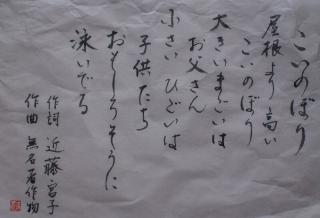 こいのぼり
屋根より高い
こいのぼり
大きいまごいは
お父さん
小さいひごいは
子供たち
おもしろそうに
泳いでる
作詞 近藤宮子
作曲 無名著作物